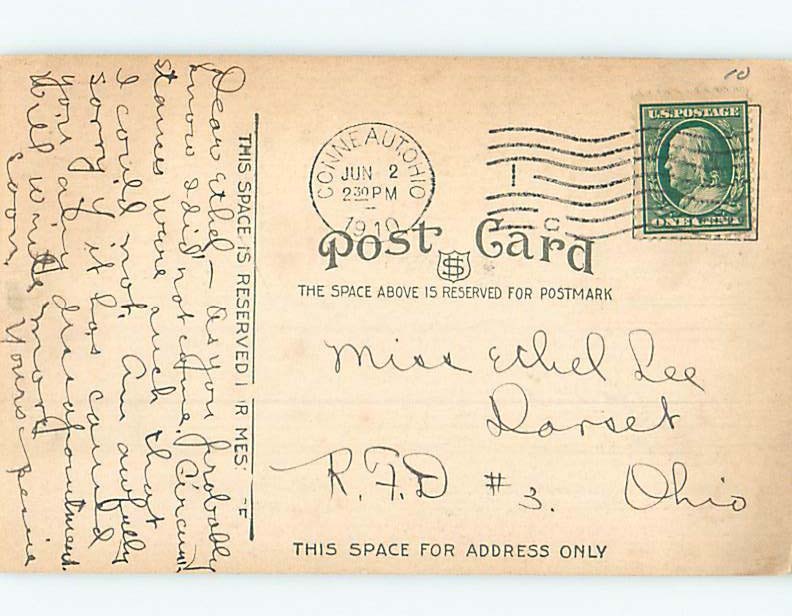 10
CONNEAUT, OHIO
JUN 2
2 30 PM
1910
U.S. POSTAGE
ONE CENT
C
Post Card
THE SPACE ABOVE IS RESERVED FOR POSTMARK
Miss Ethel Lee
Dorset
R.F.D #3. Ohio
THIS SPACE FOR ADDRESS ONLY
THIS SPACE IS RESERVED R MES
Dear Ethel – As you probably
know I did not come. Circum
stances were such that
I could not. Am awfully
sorry if it has caused
you any disapointment.
Will write more
soon. Yours